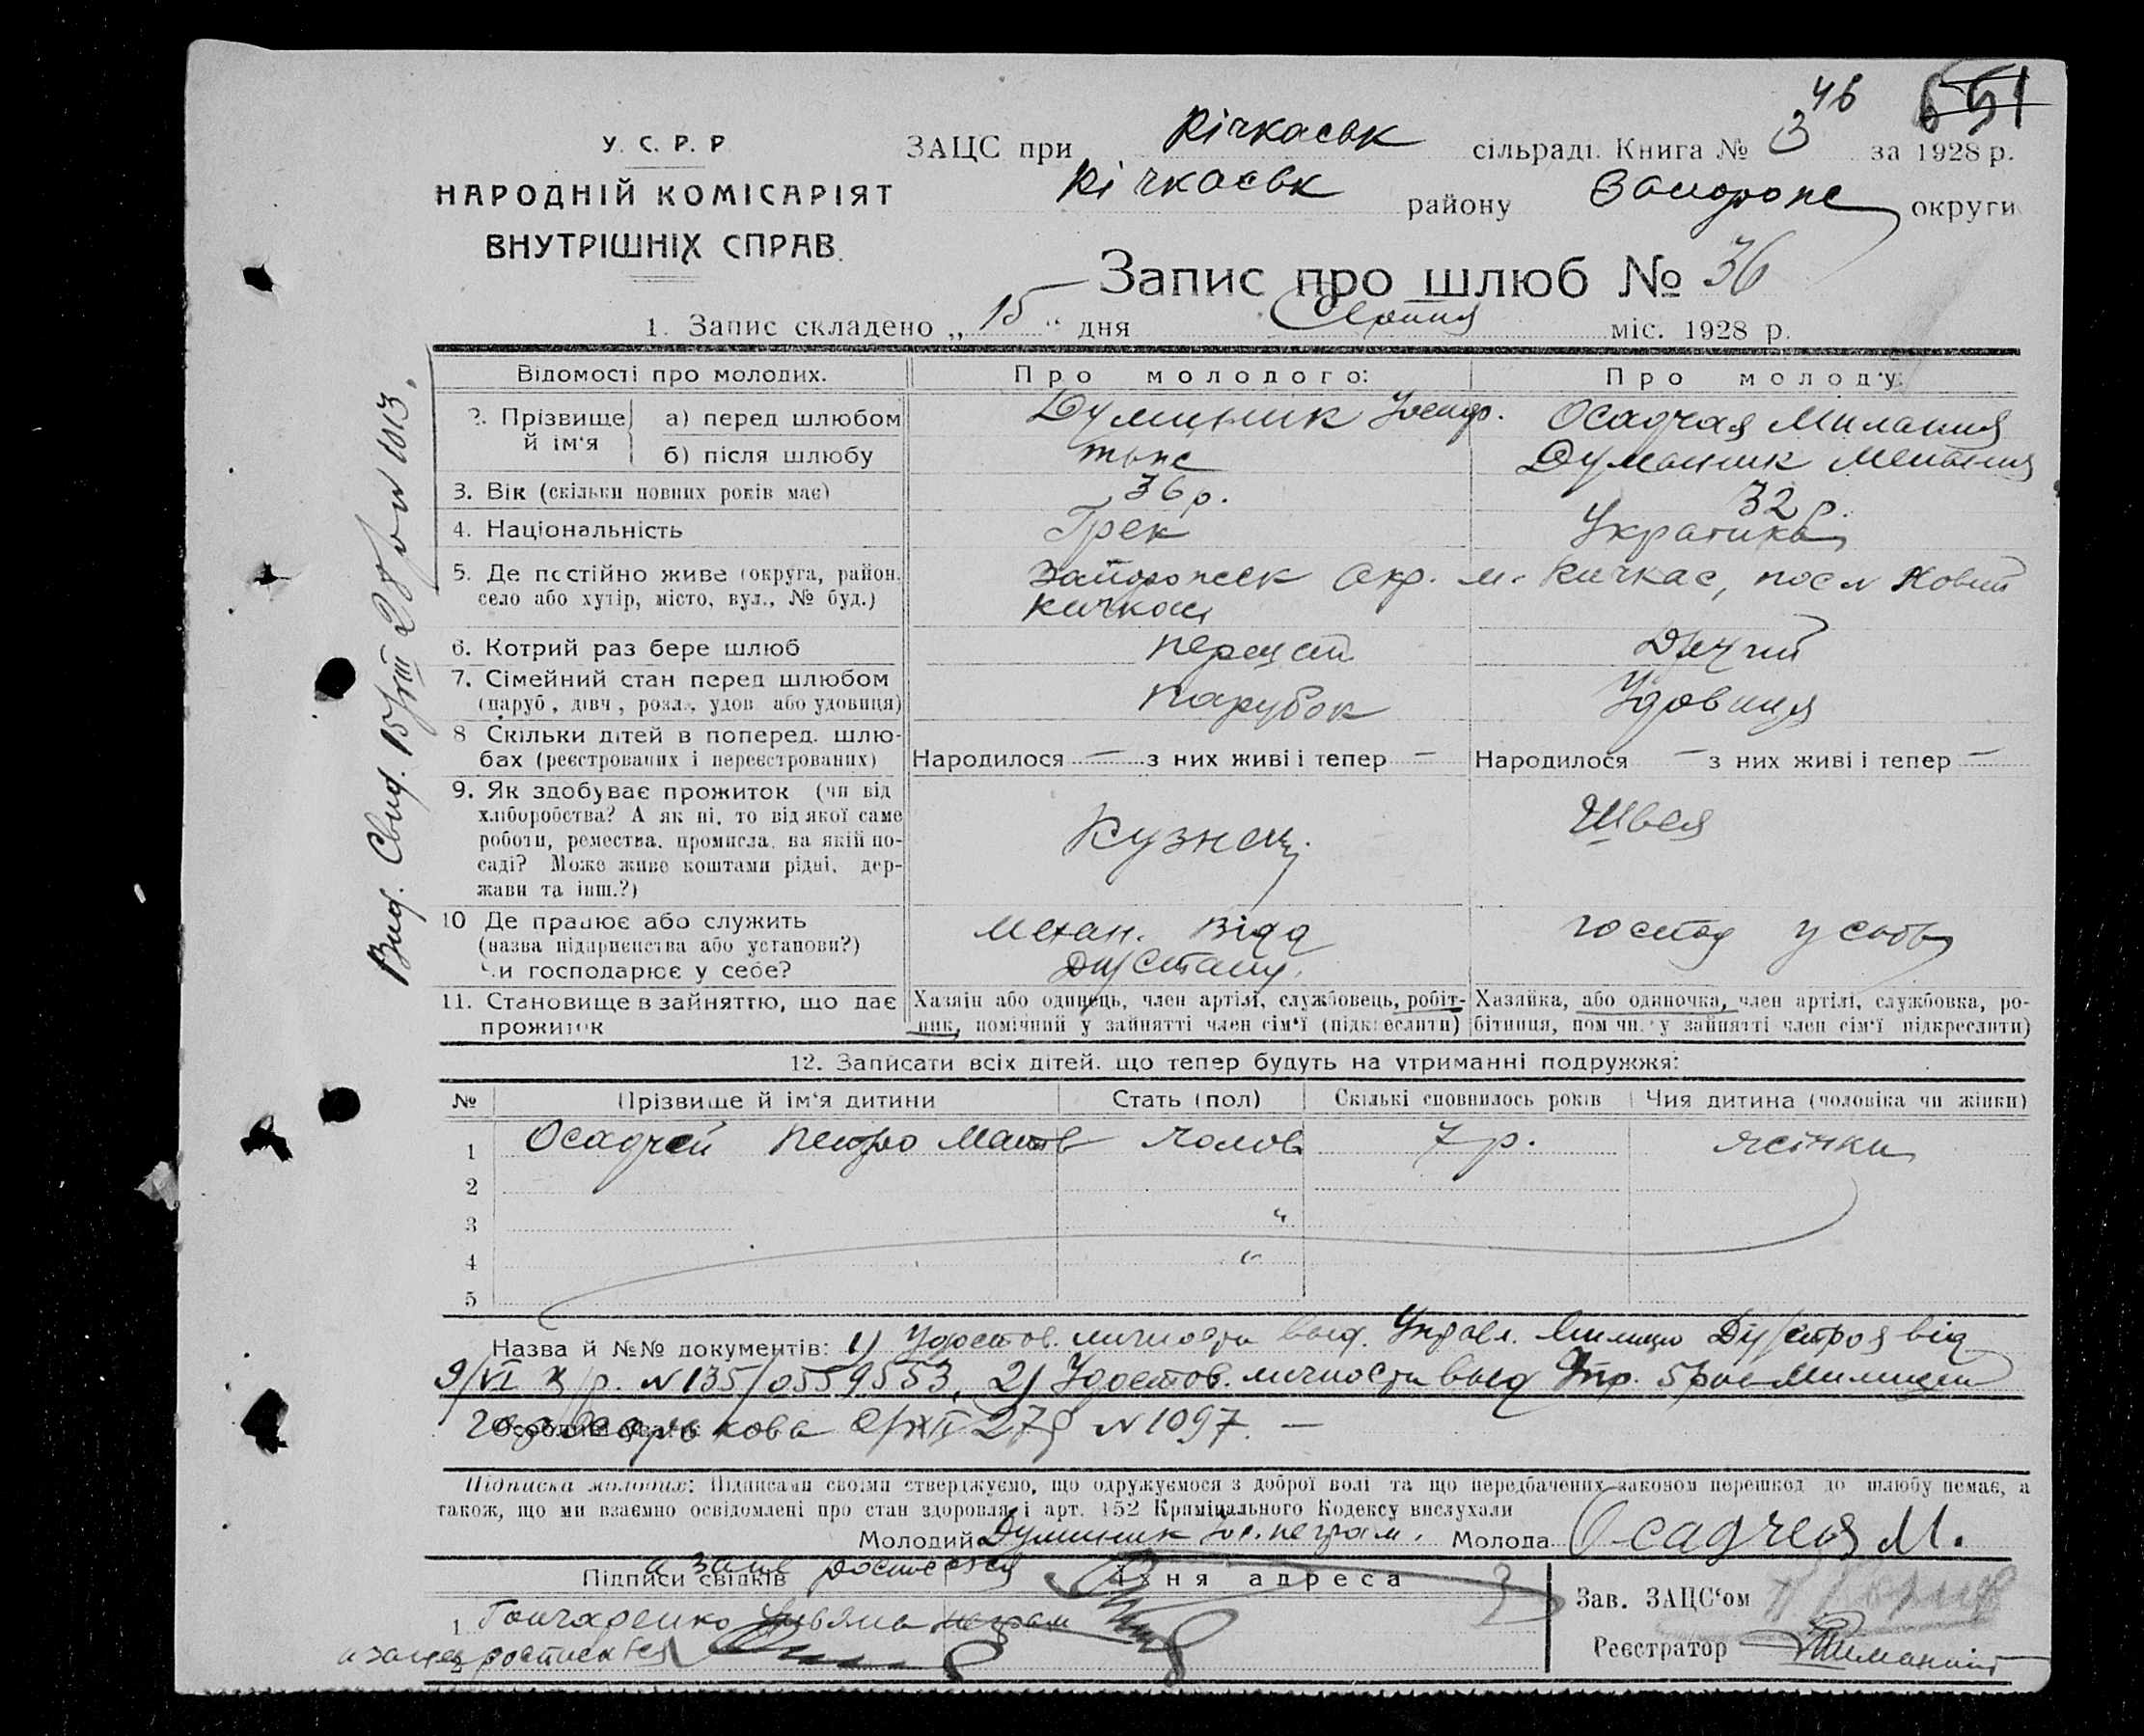 46 651
У. С. Р. Р.
НАРОДНІЙ КОМІСАРІЯТ
ВНУТРІШНІХ СПРАВ.
ЗАЦС при Кічкаськ сільраді. Книга № 3 за 1928 р.
Кічкаськ району Запорож округи
Запис про шлюб № 36
1. Запис складено „ 15 “ дня Серпня міс. 1928 р.
Відомості про молодих. Про молодого: Про молоду:
2. Прізвище й ім'я а) перед шлюбом Думиник Иосиф. Осадчая Милания
б) після шлюбу тоже Думаник Мелания
3. Вік (скільки повних років має) 36 р. 32 р.
4. Національність Грек Украинка
5. Де постійно живе (округа, район, село або хутір, місто, вул., № буд.) Запорожск Окр. м. Кичкас, посл Новий
Кичкас
6. Котрий раз бере шлюб первий Другий
7. Сімейний стан перед шлюбом (паруб., дівч., розл., удов. або удовиця) Парубок Удовиця
8. Скільки дітей в поперед. шлюбах (реєстрованих і переєстрованих) Народилося — з них живі і тепер — Народилося — з них живі і тепер —
9. Як здобуває прожиток (чи від хліборобства? А як ні, то від якої саме роботи, ремества, промисла, на якій посаді? Може живе коштами рідні, держави та інш.?) Кузнец Швея
10. Де працює або служить (назва підприємства або установи?) Чи господарює у себе? Механ. відд господ у себе
11. Становище в зайняттю, що дає прожиток Хазяїн або одинець, член артілі, службовець, робітник, помічний у зайнятті член сім'ї (підкреслити) Хазяйка, або одиночка, член артілі, службовка, робітниця, помічн. у зайнятті член сім'ї підкреслити)
12. Записати всіх дітей, що тепер будуть на утриманні подружжя:
№ Прізвище й ім'я дитини Стать (пол) Скількі сповнилось років Чия дитина (чоловіка чи жінки)
1 Осадчей Петро чолов 7 р. жінки
2
3 "
4 "
5
Назва й №№ документів: 1) Удостов. личности выд. Управл. Милиции від
9/VI р. N 135/0559553, 2) Удостов. личности выд Упр. 5 рай Милиции
гор Харькова XII 27 р N 1097. —
Підписка молодих: Підписами своїми стверджуємо, що одружуємося з доброї волі та що передбачених законом перешкод до шлюбу немає, а
також, що ми взаємно освідомлені про стан здоровля і арт. 152 Кримінального Кодексу вислухали
Молодий Думиник Иос. неграм. Молода Осадчея М.
Підписи свідків Їхня адреса
1 Гончаренко неграм
2
Зав. ЗАЦС'ом
Реєстратор
Вид. Свид. 15/VIII 28 р N 1013.